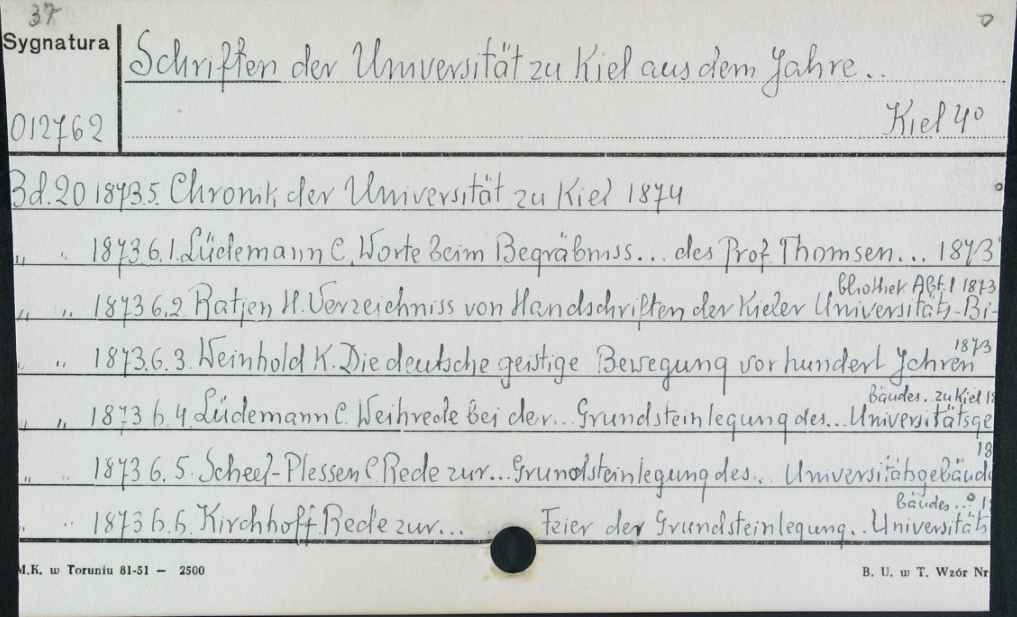 37
Sygnatura
Schriften der Universität zu Kiel aus dem Jahre..
012762
Kiel 4°
Bd. 20 1873.5. Chronik der Universität zu Kiel 1874
„ „ 1873 6.1. Lüdemann C. Worte beim Begräbniss... des Prof. Thomsen... 1873
bliothek Abt. I 1873
„ „ 1873 6.2. Ratjen H. Verzeichniss von Handschriften der Kieler Universitäts-Bi-
1873
„ „ 1873.6.3. Weinhold K. Die deutsche geistige Bewegung vor hundert Jchren
bäudes.. zu Kiel 18
„ „ 1873 6.4 Lüdemann C. Weihrede bei der... Grundsteinlegung des... Universitätsge
18
„ „ 1873 6.5. Scheel-Plessen C Rede zur... Grundsteinlegung des... Universitätsgebäude
bäudes...
„ „ 1873 6.6. Kirchhoff. Rede zur... Feier der Grundsteinlegung.. Universitäts
M.K. w Toruniu 81-51 — 2500
B. U. w T. Wzór Nr